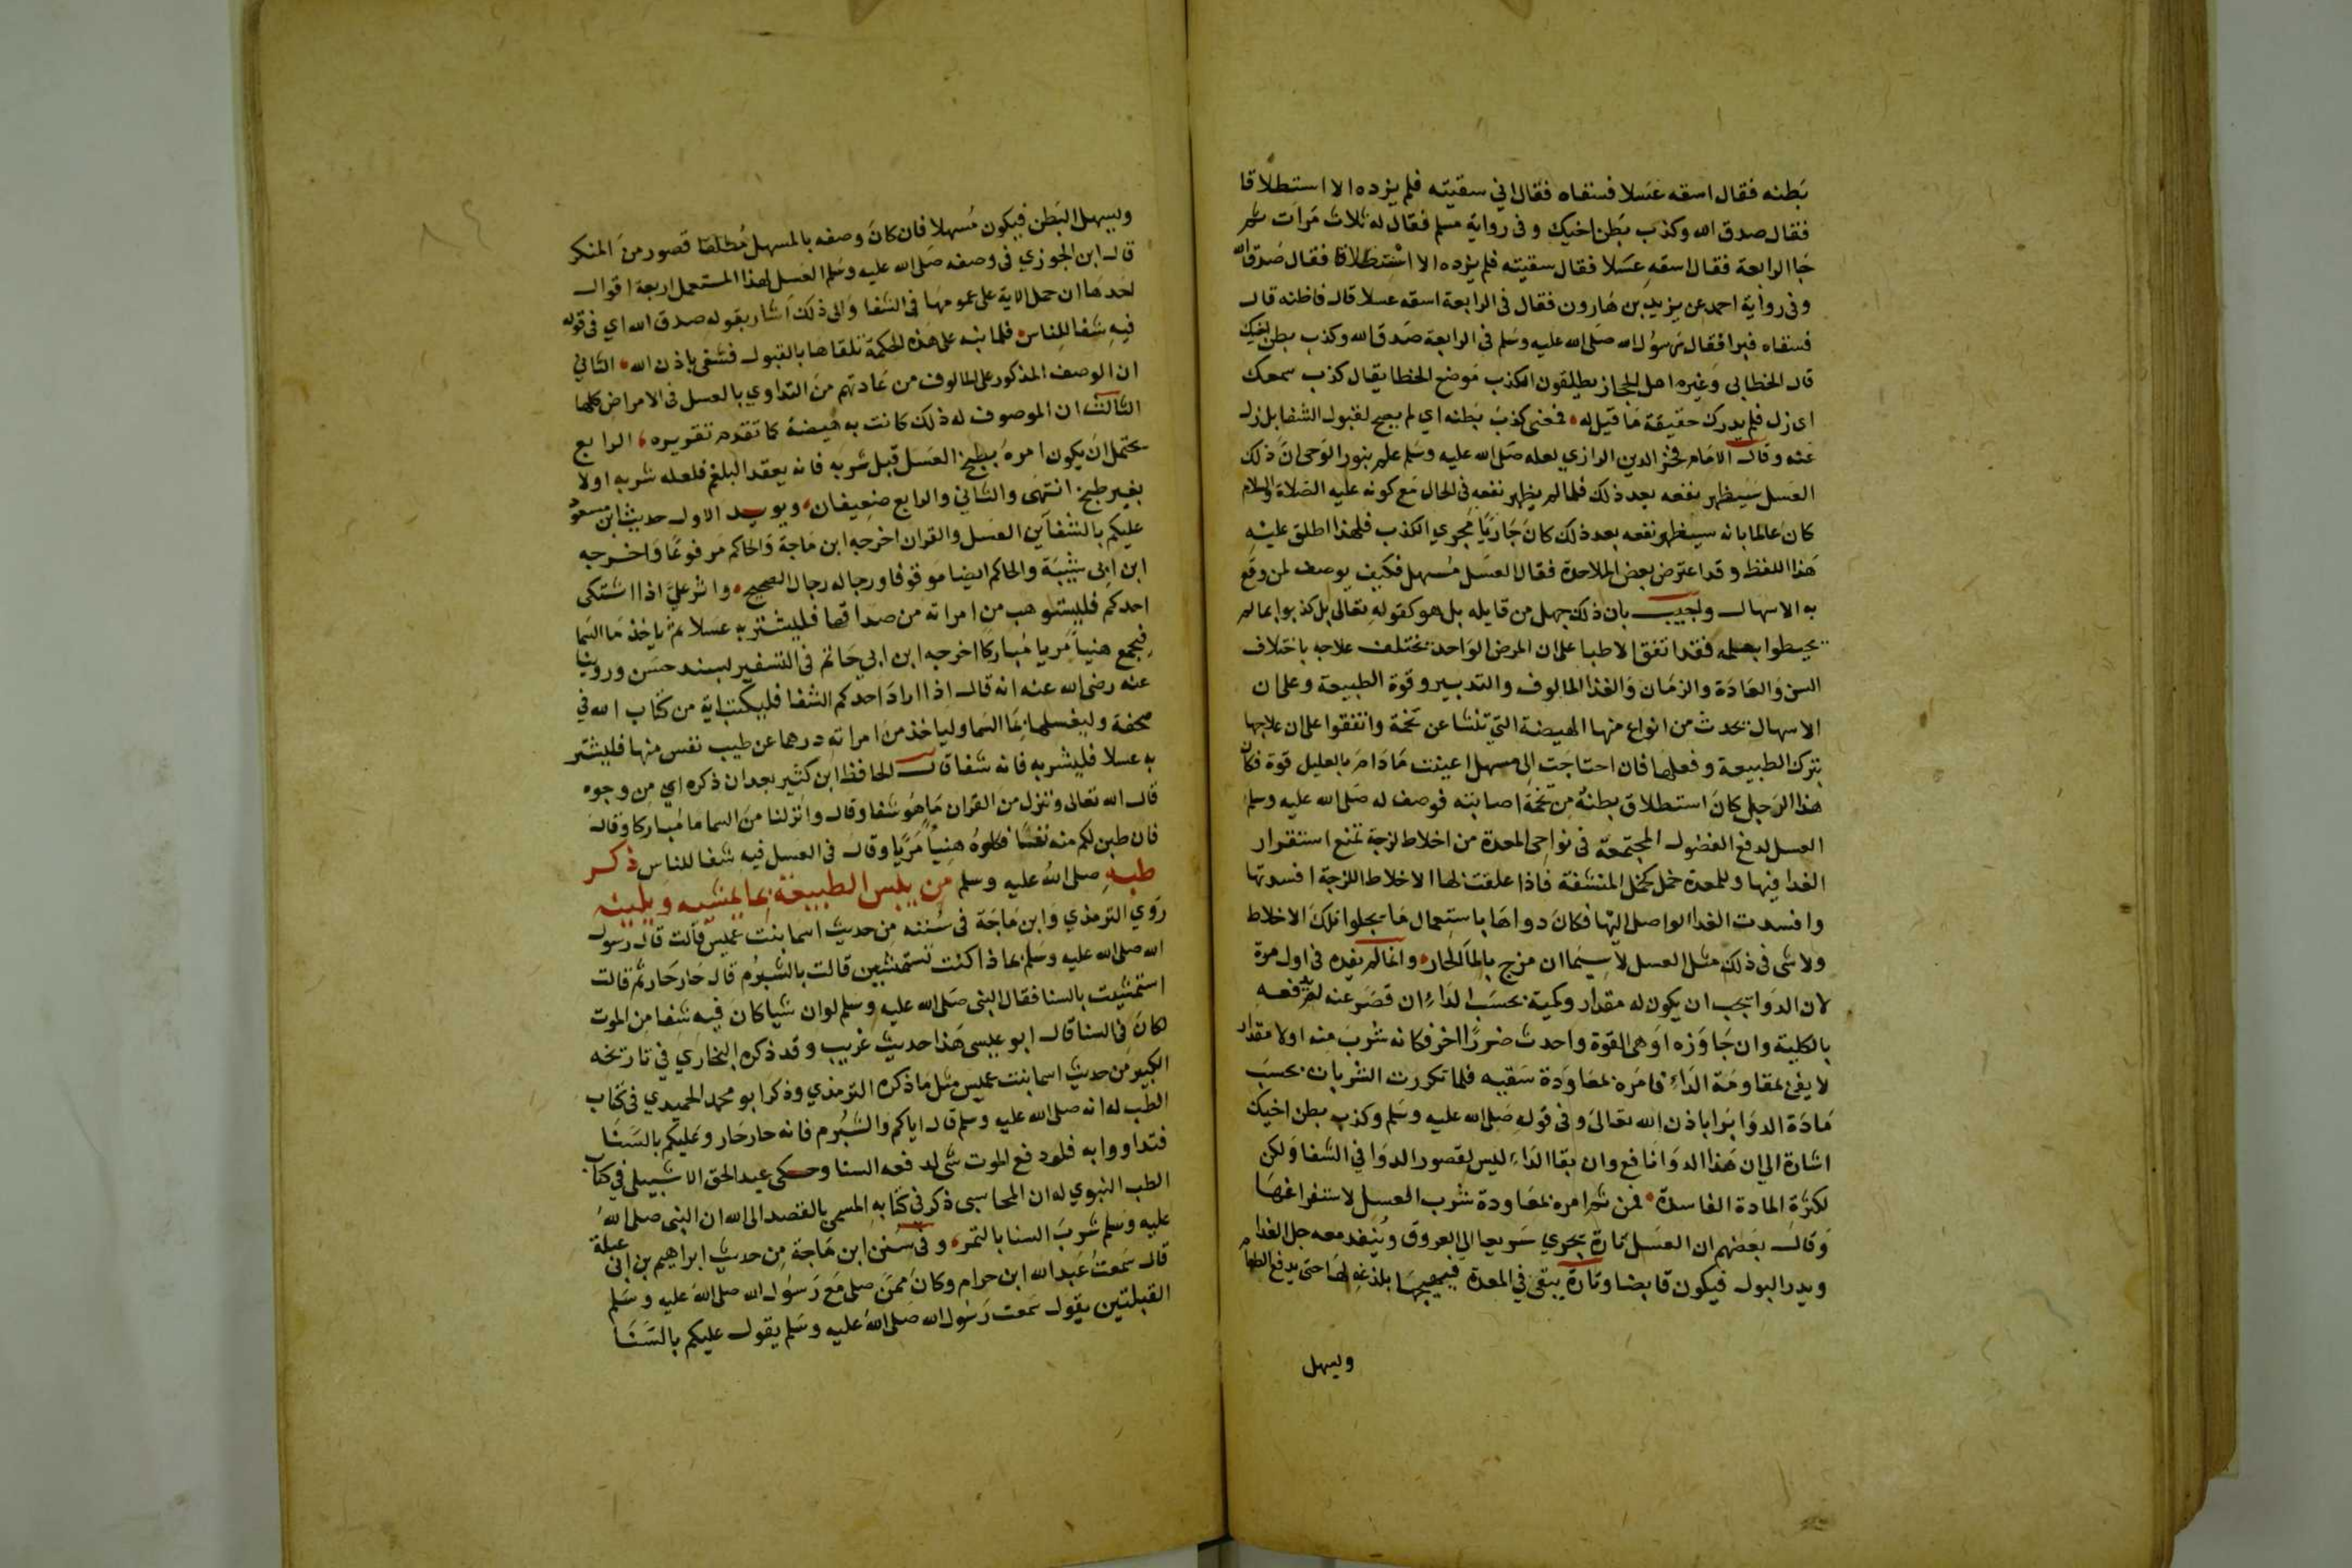 بطنه فقال اسقه عسلا فسقاه فقال اني سقيته فلم يزده الا استطلاقا
فقال صدق الله وكذب بطن اخيك وفى رواية مسلم فقال له ثلاث مرات ثم
جا الرابعة فقال اسقه عسلا فقال سقيته فلم يزده الا استطلاقا فقال صدق الله
وفى رواية احمد عن يزيد بن هارون فقال فى الرابعة اسقه عسلا قال فاظنه قال
فسقاه فبرا فقال رسول الله صلى الله عليه وسلم فى الرابعة صدق الله وكذب بطن اخيك
قال الخطابى وغيره اهل الحجاز يطلقون الكذب موضع الخطا يقال كذب سمعك
اى زل فلم يدرك حقيقة ما قيل له فمعنى كذب بطنه اي لم يصح لقبول الشفا بل زل
عنه وقال الامام فخر الدين الرازي لعله صلى الله عليه وسلم علم بنور الوحى ان ذلك
العسل سيظهر نفعه بعد ذلك فلما لم يظهر نفعه فى الحال مع كونه عليه الصلاة والسلام
كان عالما بانه سيظهر نفعه بعد ذلك كان جاريا مجري الكذب فلهذا اطلق عليه
هذا اللفظ وقد اعترض بعض الملاحدة فقال العسل مسهل فكيف يوصف لمن وقع
به الاسهال واجيب بان ذلك جهل من قايله بل هو كقوله تعالى بل كذبوا بما لم
يحيطوا بعلمه فقد اتفق الاطبا على ان المرض الواحد يختلف علاجه باختلاف
السن والعادة والزمان والغذا المالوف والتدبير وقوة الطبيعة وعلى ان
الاسهال يحدث من انواع منها الهيضة التي تنشا عن تخمة واتفقوا على ان علاجها
بترك الطبيعة وفعلها فان احتاجت الى مسهل اعينت ما دام بالعليل قوة فكان
هذا الرجل كان استطلاق بطنه من تخمة اصابته فوصف له صلى الله عليه وسلم
العسل لدفع الفضول المجتمعة فى نواحى المعدة من اخلاط لزجة تمنع استقرار
الغدا فيها وللمعدة خمل كخمل المنشفة فاذا علقت بها الاخلاط اللزجة افسدتها
وافسدت الغدا الواصل اليها فكان دواها باستعمال ما يجلوا تلك الاخلاط
ولا شى فى ذلك مثل العسل لا سيما ان مزج بالما الحار وانما لم يفده فى اول مرة
لان الدوا يجب ان يكون له مقدار وكمية بحسب الداء ان قصر عنه لم يدفعه
بالكلية وان جاوزه اوهى القوة واحدث ضررا اخر فكانه شرب منه اولا مقدار
لا يفى بمقاومة الداء فامره بمعاودة سقيه فلما تكررت الشربات بحسب
مادة الدوا برا باذن الله تعالى وفى قوله صلى الله عليه وسلم وكذب بطن اخيك
اشارة الى ان هذا الدوا نافع وان بقا الداء ليس لقصور الدوا في الشفا ولكن
لكثرة المادة الفاسدة فمن ثم امره بمعاودة شرب العسل لاستفراغها
وقال بعضهم ان العسل تارة يجري سريعا الى العروق وينفد معه جل الغدا
ويدر البول فيكون قابضا وتارة يبقى في المعدة فيهيجها بلذعه لها حتى يدفع الطعام
وليسهل
ويسهل البطن فيكون مسهلا فان كان وصفه بالمسهل مطلقا قصور من المنكر
قال ابن الجوزي فى وصفه صلى الله عليه وسلم العسل لهذا المستعمل اربعة اقوال
احدها ان حمل الاية على عمومها فى الشفا والى ذلك اشار بقوله صدق الله اي فى قوله
فيه شفا للناس فلما نبه على هذه الحكمة تلقاها بالقبول فشفى باذن الله الثاني
ان الوصف المذكور على المالوف من عادتهم من التداوي بالعسل فى الامراض كلها
الثالث ان الموصوف له ذلك كانت به هيضة كما تقدم تقريره الرابع
يحتمل ان يكون امره بطبخ العسل قبل شربه فانه يعقد البلغم فلعله شربه اولا
بغير طبخ انتهى والثاني والرابع ضعيفان ويويد الاول حديث ابن مسعود
عليكم بالشفاين العسل والقران اخرجه ابن ماجة والحاكم مرفوعا واخرجه
ابن ابي شيبة والحاكم ايضا موقوفا ورجاله رجال الصحيح واثر علي اذا اشتكى
احدكم فليستوهب من امراته من صداقها فليشتر به عسلا ثم ياخذ ما السما
فيجمع هنيا مريا مباركا اخرجه ابن ابي حاتم فى التفسير بسند حسن وروينا
عنه رضى الله عنه انه قال اذا اراد احدكم الشفا فليكتب اية من كتاب الله في
صحفة وليغسلها بما السما ولياخذ من امراته درهما عن طيب نفس منها فليشتر
به عسلا فليشربه فانه شفا قال الحافظ ابن كثير بعد ان ذكره اي من وجوه
قال الله تعالى وننزل من القران ما هو شفا وقال وانزلنا من السما ما مباركا وقال
فان طبن لكم منه نفسا فكلوه هنيا مريا وقال فى العسل فيه شفا للناس ذكر
طبه صلى الله عليه وسلم من يبس الطبيعة بما يمشيه ويلينه
روي الترمذي وابن ماجة فى سننه من حديث اسما بنت عميس قالت قال رسول
الله صلى الله عليه وسلم بماذا كنت تستمشين قالت بالشبرم قال حار حار ثم قالت
استمشيت بالسنا فقال النبى صلى الله عليه وسلم لو ان شيا كان فيه شفا من الموت
لكان فى السنا قال ابو عيسى هذا حديث غريب وقد ذكره البخاري في تاريخه
الكبير من حديث اسما بنت عميس مثل ما ذكره الترمذي وذكر ابو محمد الحميدي فى كتاب
الطب له انه صلى الله عليه وسلم قال اياكم والشبرم فانه حار حار وعليكم بالسنا
فتداووا به فلو دفع الموت شى لدفعه السنا وحكى عبد الحق الاشبيلى في كتاب
الطب النبوي له ان المحاسبى ذكر فى كتابه المسمى بالقصد الى الله ان النبى صلى الله
عليه وسلم شرب السنا بالتمر وفى سنن ابن ماجة من حديث ابراهيم بن ابى عبلة
قال سمعت عبد الله ابن حرام وكان ممن صلى مع رسول الله صلى الله عليه وسلم
القبلتين يقول سمعت رسول الله صلى الله عليه وسلم يقول عليكم بالسنا